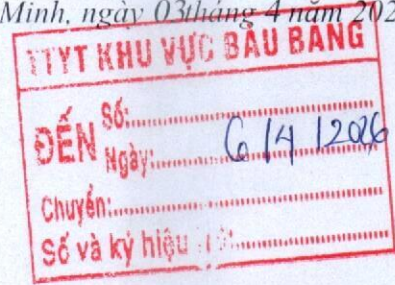 Minh, ngày 03tháng 4 năm 202
TTYT KHU VỰC BÀU BÀNG
ĐẾN
Số:
Ngày: 6/4/2026
Chuyển:
Số và ký hiệu